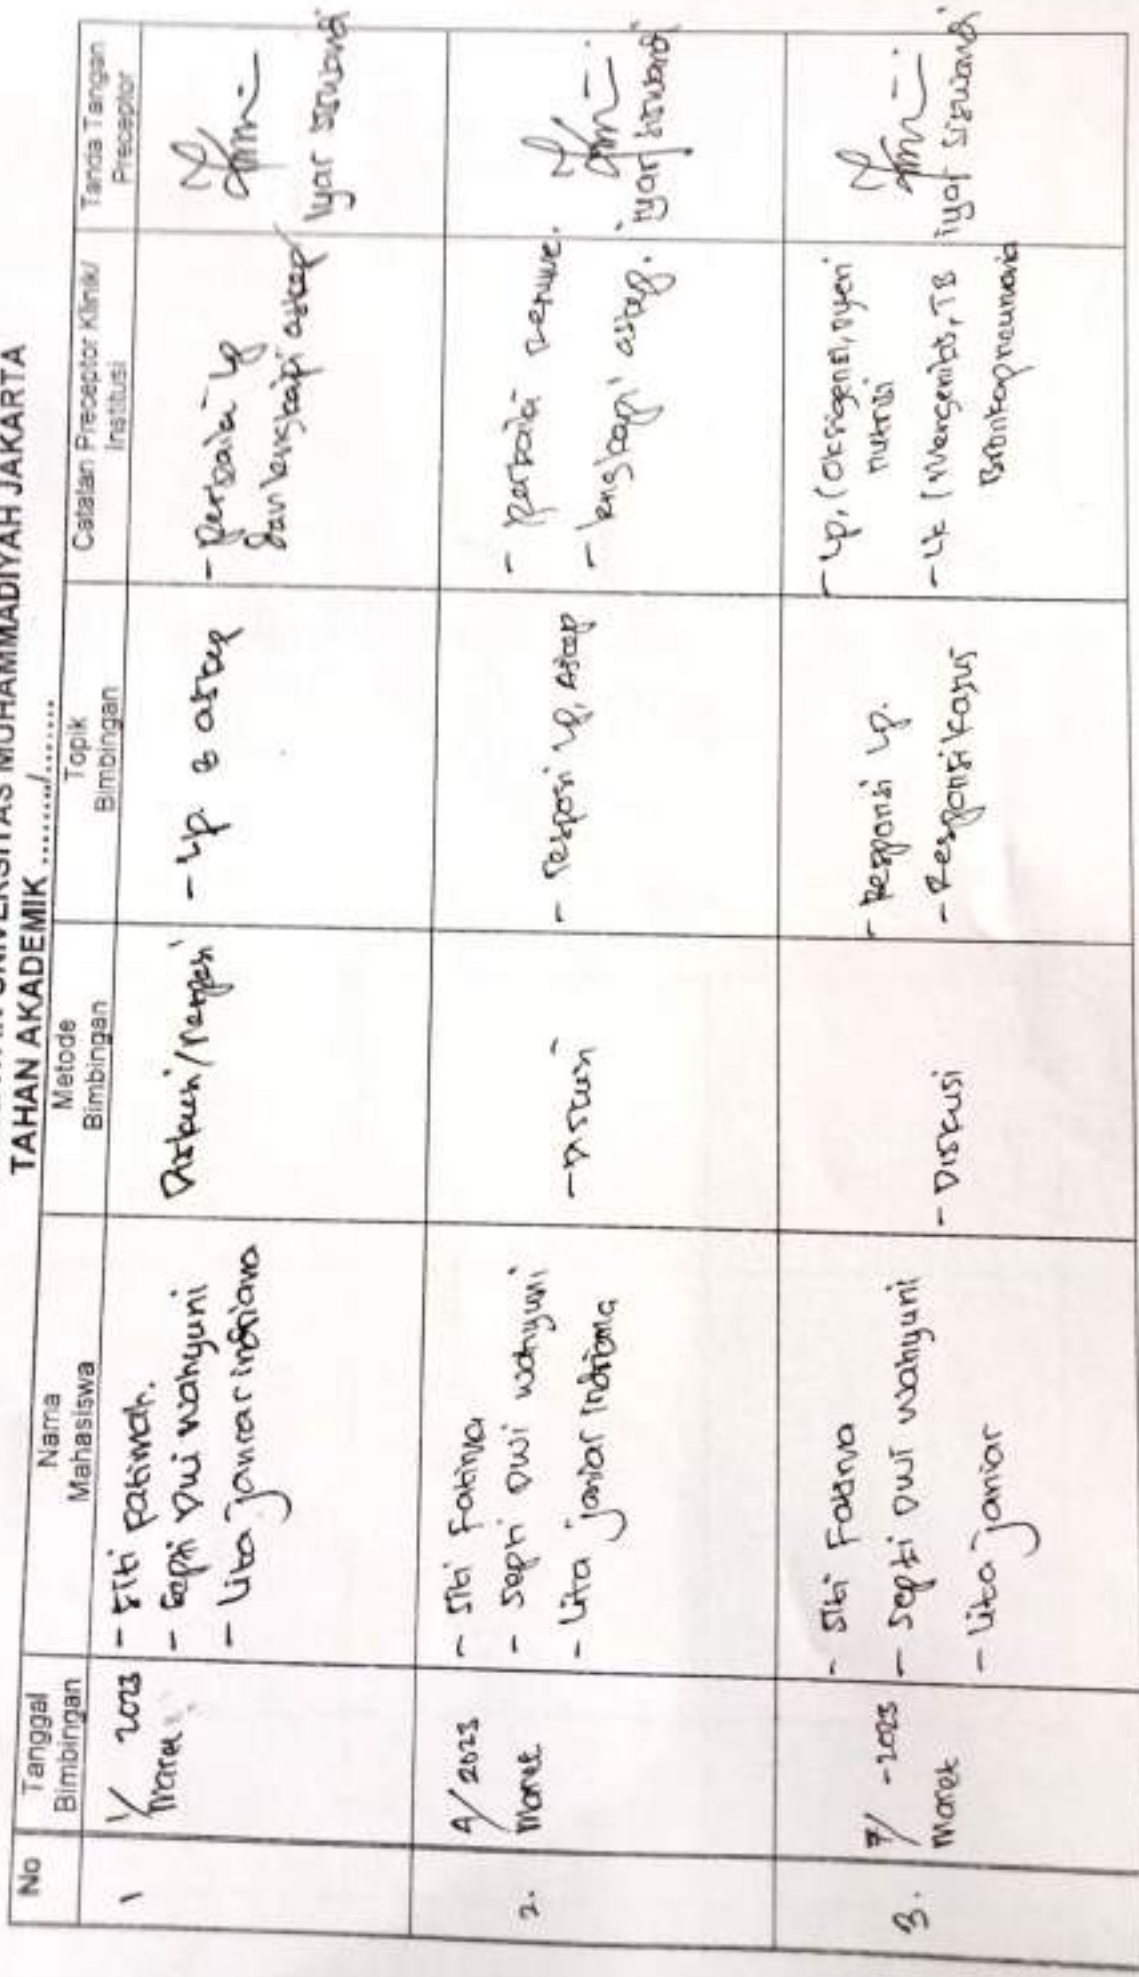 UNIVERSITAS MUHAMMADIYAH JAKARTA
TAHAN AKADEMIK ......../........
No
Tanggal
Bimbingan
Nama
Mahasiswa
Metode
Bimbingan
Topik
Bimbingan
Catatan Preceptor Klinik/
Institusi
Tanda Tangan
Preceptor
1
1/ 2023
Maret
- Siti Fatimah.
- Septi Dwi Wahyuni
- Lita Janiar Indriana
Diskusi/
- Lp. & askep
- perbaiki Lp
dan lengkapi askep
Iyar Siswandi
2.
4/ 2023
Maret
- Siti Fatima
- Septi Dwi Wahyuni
- Lita Janiar Indriana
- Diskusi
- resposi Lp, Askep
- perbaiki
- lengkapi askep.
Iyar Siswandi
3.
7/ - 2023
Maret
- Siti Fatima
- Septi Dwi Wahyuni
- Lita Janiar
- Diskusi
- Responsi Lp.
- Responsi Kasus
- Lp, (Oksigenasi, nyeri
nutrisi
- LK (Meningitis, TB
Bronkopneumonia
Iyar Siswandi